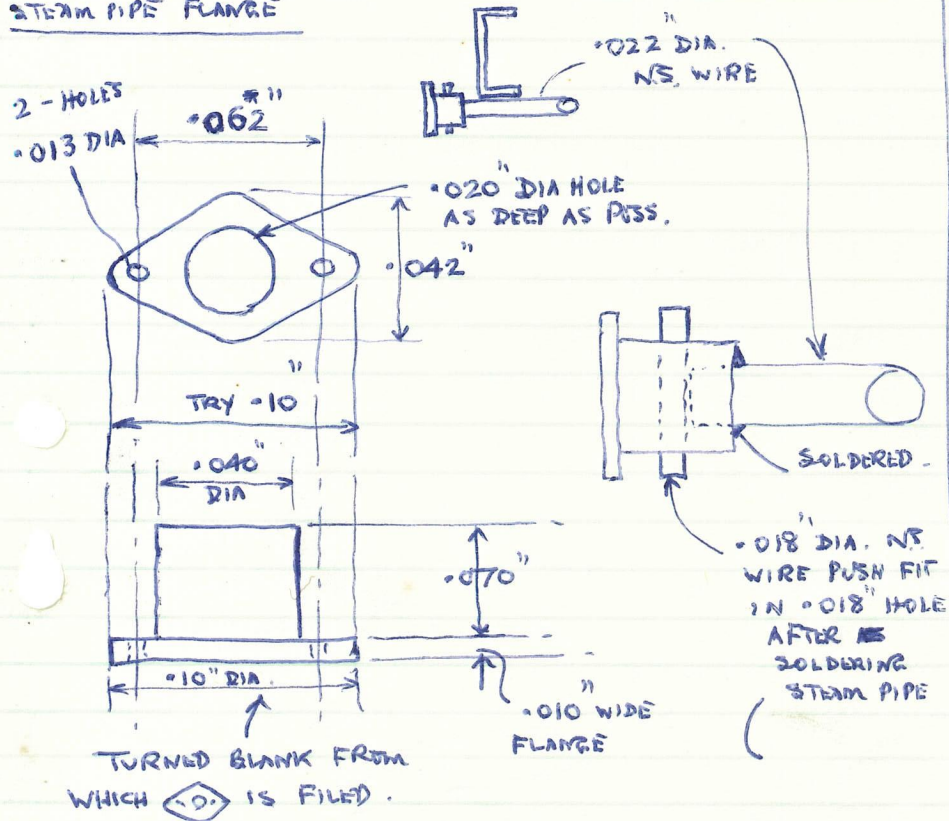 STEAM PIPE FLANGE
2 - HOLES
.013 DIA
.062"
.022" DIA.
NS. WIRE
.020" DIA HOLE
AS DEEP AS POSS.
.042"
TRY .10"
.040"
DIA
.070"
.10" DIA.
.010" WIDE
FLANGE
TURNED BLANK FROM
WHICH IS FILED.
SOLDERED
.018" DIA. NS
WIRE PUSH FIT
IN .018" HOLE
AFTER
SOLDERING
STEAM PIPE